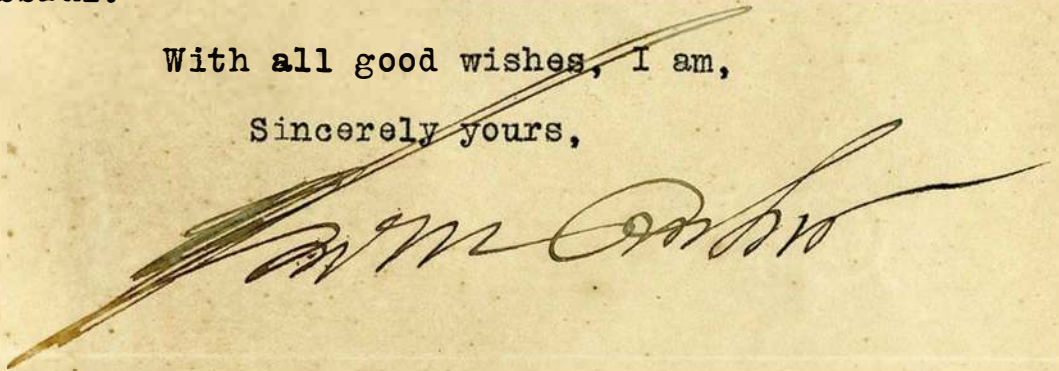 With all good wishes, I am,
Sincerely yours,